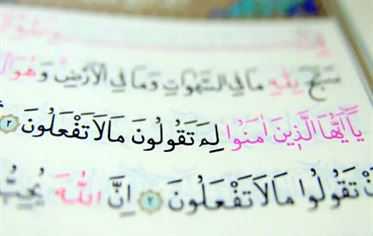 سَبَّحَ لِلّٰهِ مَا فِي السَّمٰوَاتِ وَمَا فِي الْاَرْضِ وَهُوَ
يَٓا اَيُّهَا الَّذ۪ينَ اٰمَنُوا لِمَ تَقُولُونَ مَا لَا تَفْعَلُونَ ﴿٢﴾
نْ تَقُولُوا مَا لَا تَفْعَلُونَ ﴿٣﴾ اِنَّ اللّٰهَ يُحِبُّ